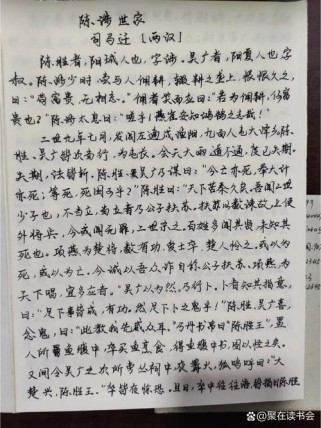 陈涉世家
司马迁 [两汉]
陈胜者,阳城人也,字涉。吴广者,阳夏人也,字
叔。陈涉少时,尝与人佣耕,辍耕之垄上,怅恨久之,
曰:“苟富贵,无相忘。”佣者笑而应曰:“若为佣耕,何富
贵也?”陈涉太息曰:“嗟乎!燕雀安知鸿鹄之志哉!”
二世元年七月,发闾左適戍渔阳,九百人屯大泽乡。陈
胜、吴广皆次当行,为屯长。会天大雨,道不通,度已失期。
失期,法皆斩。陈胜、吴广乃谋曰:“今亡亦死,举大计
亦死;等死,死国可乎?”陈胜曰:“天下苦秦久矣。吾闻二世
少子也,不当立,当立者乃公子扶苏。扶苏以数谏故,上使
外将兵。今或闻无罪,二世杀之。百姓多闻其贤,未知其
死也。项燕为楚将,数有功,爱士卒,楚人怜之。或以为
死,或以为亡。今诚以吾众诈自称公子扶苏、项燕,为
天下唱,宜多应者。”吴广以为然。乃行卜。卜者知其指意,
曰:“足下事皆成,有功。然足下卜之鬼乎!”陈胜、吴广喜,
念鬼,曰:“此教我先威众耳。”乃丹书帛曰“陈胜王”,置
人所罾鱼腹中。卒买鱼烹食,得鱼腹中书,固以怪之矣。
又间令吴广之次所旁丛祠中,夜篝火,狐鸣呼曰:“大
楚兴,陈胜王。”卒皆夜惊恐。旦日,卒中往往语,皆指目陈胜
@聚在读书会